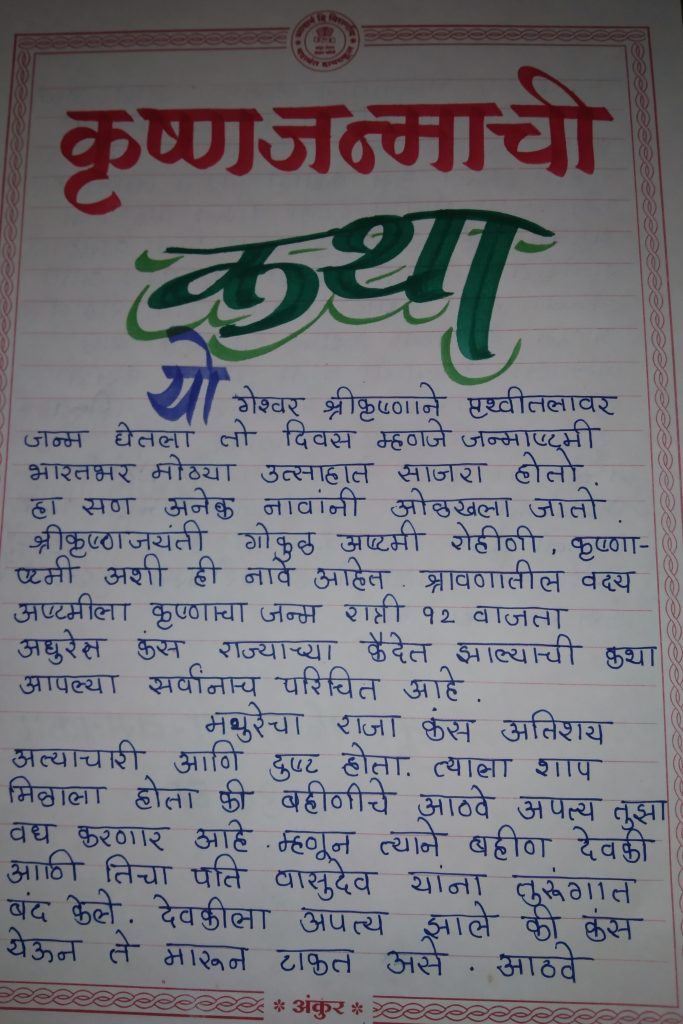 कृष्णजन्माची
कथा
यो
गेश्वर श्रीकृष्णाने पृथ्वीतलावर
जन्म घेतला तो दिवस म्हणजे जन्माष्टमी
भारतभर मोठ्या उत्साहात साजरा होतो.
हा सण अनेक नावांनी ओळखला जातो.
श्रीकृष्णजयंती गोकुळ अष्टमी रोहीणी, कृष्णा-
ष्टमी अशी ही नावे आहेत. श्रावणातील वद्य
अष्टमीला कृष्णाचा जन्म रात्री १२ वाजता
कंस राज्याच्या कैदेत झाल्याची कथा
आपल्या सर्वांनाच परिचित आहे.
मथुरेचा राजा कंस अतिशय
अत्याचारी आणि दुष्ट होता. त्याला शाप
मिळाला होता की बहीणीचे आठवे अपत्य तुझा
वध करणार आहे. म्हणून त्याने बहीण देवकी
आणि तिचा पति वासुदेव यांना तुरूंगात
बंद केले. देवकीला अपत्य झाले की कंस
येऊन ते मारून टाकत असे. आठवे
* अंकुर *